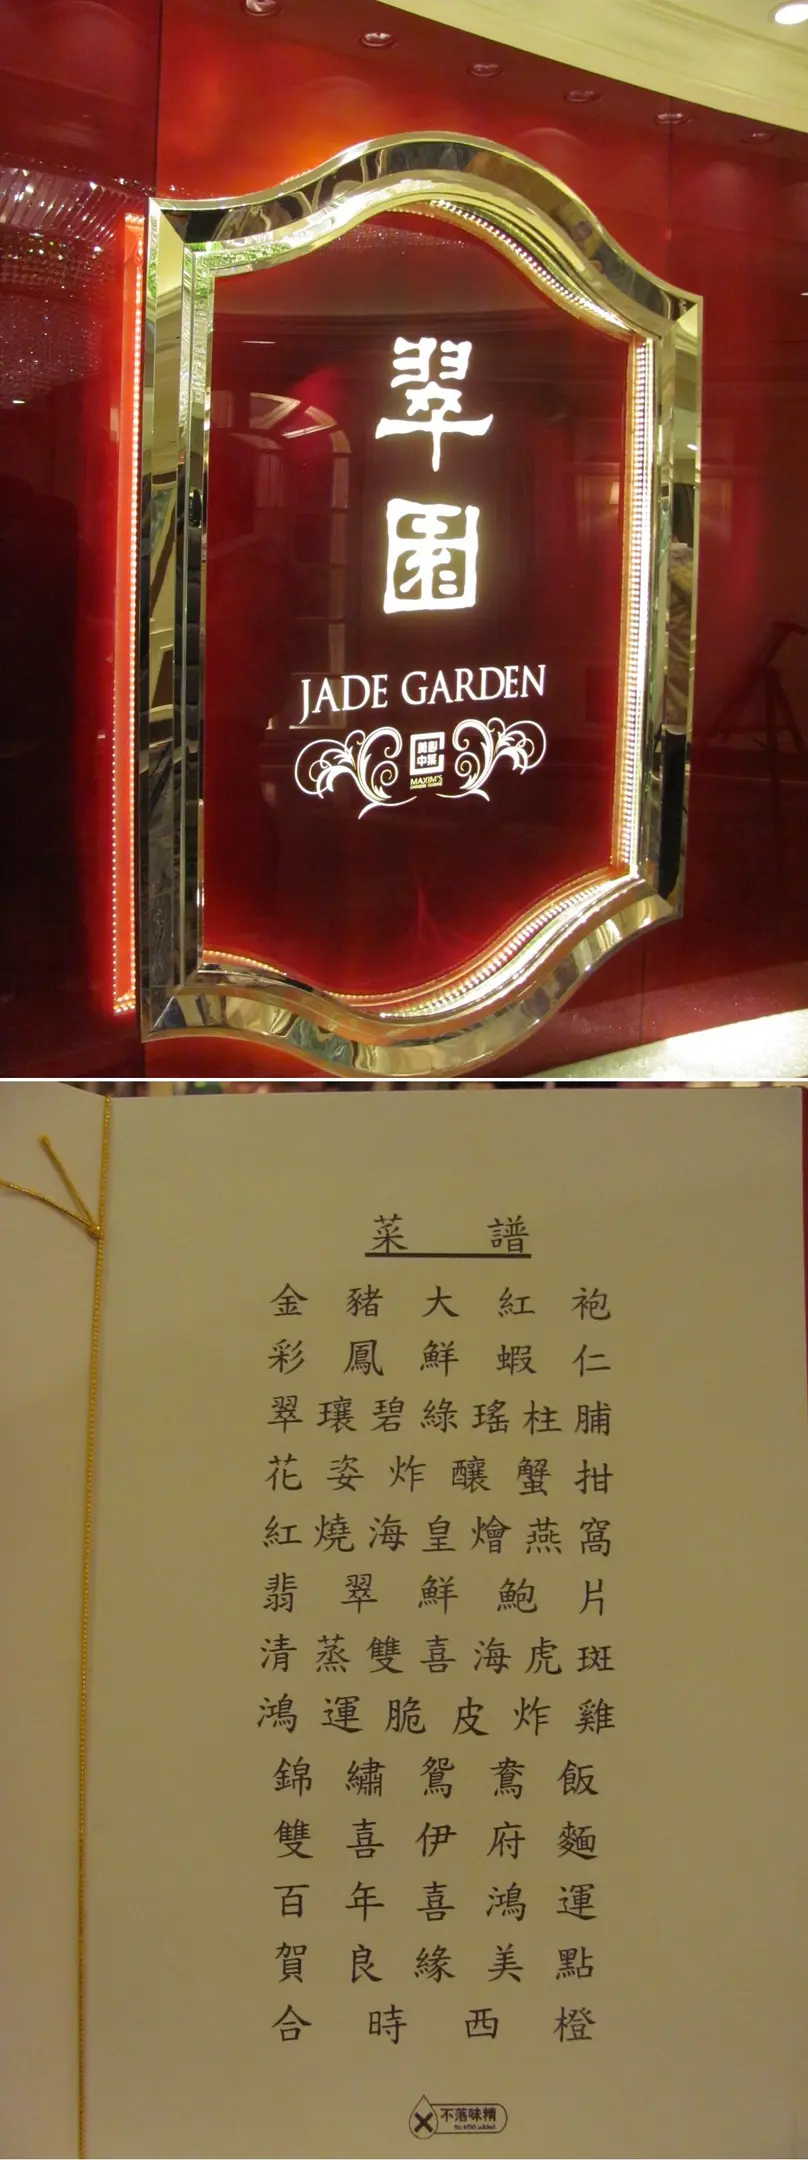 翠園
JADE GARDEN
美心
中菜
MAXIM'S
CHINESE CUISINE
菜譜
金豬大紅袍
彩鳳鮮蝦仁
翠瓖碧綠瑤柱脯
花姿炸釀蟹拑
紅燒海皇燴燕窩
翡翠鮮鮑片
清蒸雙喜海虎斑
鴻運脆皮炸雞
錦繡鴛鴦飯
雙喜伊府麵
百年喜鴻運
賀良緣美點
合時西橙
不落味精
No MSG added